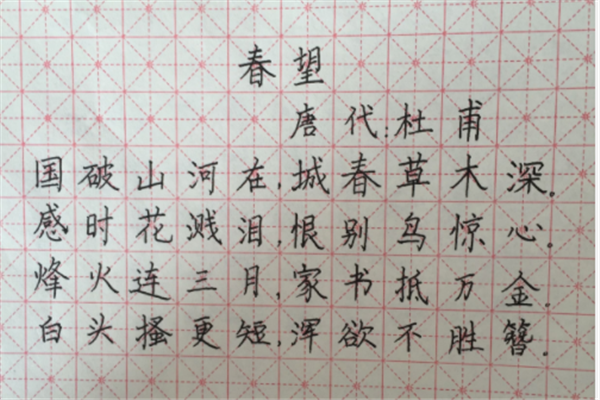 春望
唐代:杜甫
国破山河在,城春草木深.
感时花溅泪,恨别鸟惊心.
烽火连三月,家书抵万金.
白头搔更短,浑欲不胜簪.